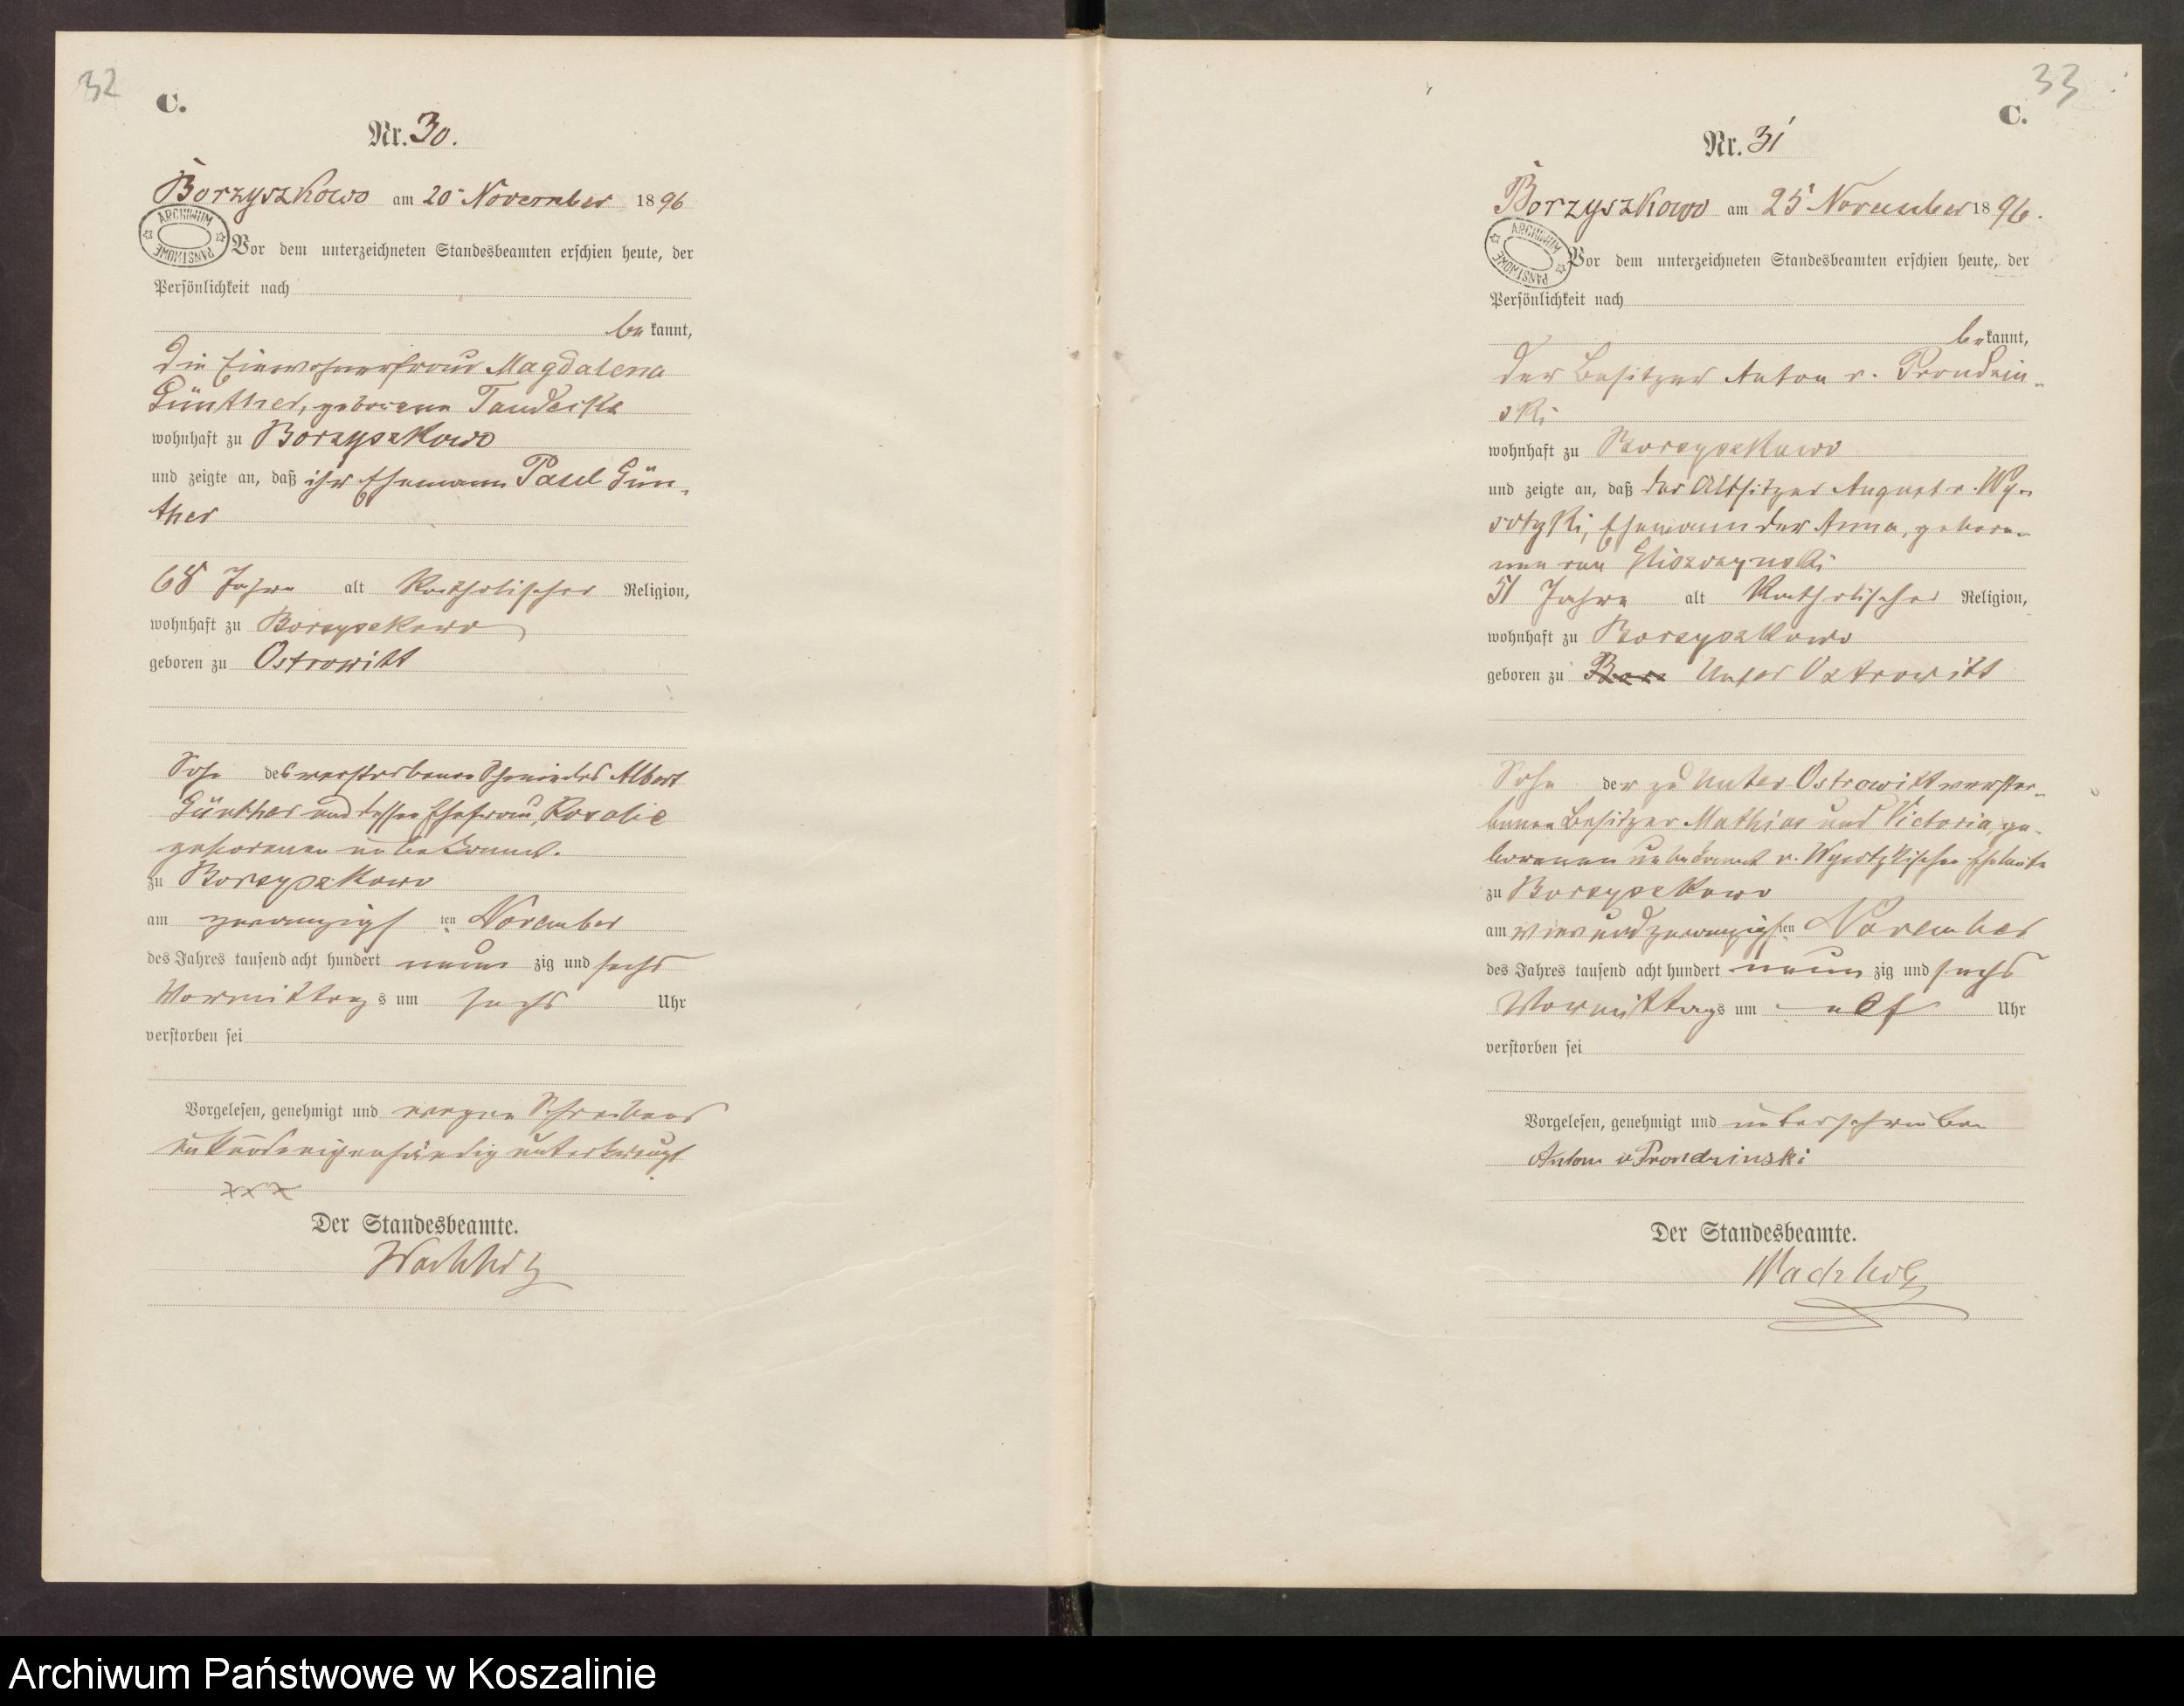 32
C.
Nr. 30.
Borzyszkowo am 20ten November 1896
ARCHIWUM PAŃSTWOWE
Vor dem unterzeichneten Standesbeamten erschien heute, der
Persönlichkeit nach
bekannt,
die Einwohnerfrau Magdalena
Günther, geborene
wohnhaft zu Borzyszkowo
und zeigte an, daß ihr Ehemann Paul Gün-
ther
68 Jahre alt katholischer Religion,
wohnhaft zu Borzyszkowo
geboren zu Ostrowitt
Sohn des verstorbenen Schmiedes Albert
Günther und dessen Ehefrau, Rosalie
geborenen unbekannt.
zu Borzyszkowo
am zwanzigsten November
des Jahres tausend acht hundert neunzig und sechs
Vormittags um sechs Uhr
verstorben sei
Vorgelesen, genehmigt und wegen Schreibens
unkunde eigenhändig unterkreuzt
xxx
Der Standesbeamte.
Wachholz
33
C.
Nr. 31
Borzyszkowo am 25 November 1896.
ARCHIWUM PAŃSTWOWE
Vor dem unterzeichneten Standesbeamten erschien heute, der
Persönlichkeit nach
bekannt,
der Besitzer Anton v. Prondzin-
ski
wohnhaft zu Borzyszkowo
und zeigte an, daß der Altsitzer August v. Wy-
sotzki, Ehemann der Anna, gebore-
nen von
51 Jahre alt katholischer Religion,
wohnhaft zu Borzyszkowo
geboren zu Unter Ostrowitt
Sohn der zu Unter Ostrowitt verstor-
benen Besitzer Mathias und Victoria, ge-
borenen unbekannt v. Wysotzkischen Eheleute
zu Borzyszkowo
am vierundzwanzigsten November
des Jahres tausend acht hundert neunzig und sechs
Vormittags um elf Uhr
verstorben sei
Vorgelesen, genehmigt und unterschrieben
Anton v Prondzinski
Der Standesbeamte.
Wachholz
Archiwum Państwowe w Koszalinie